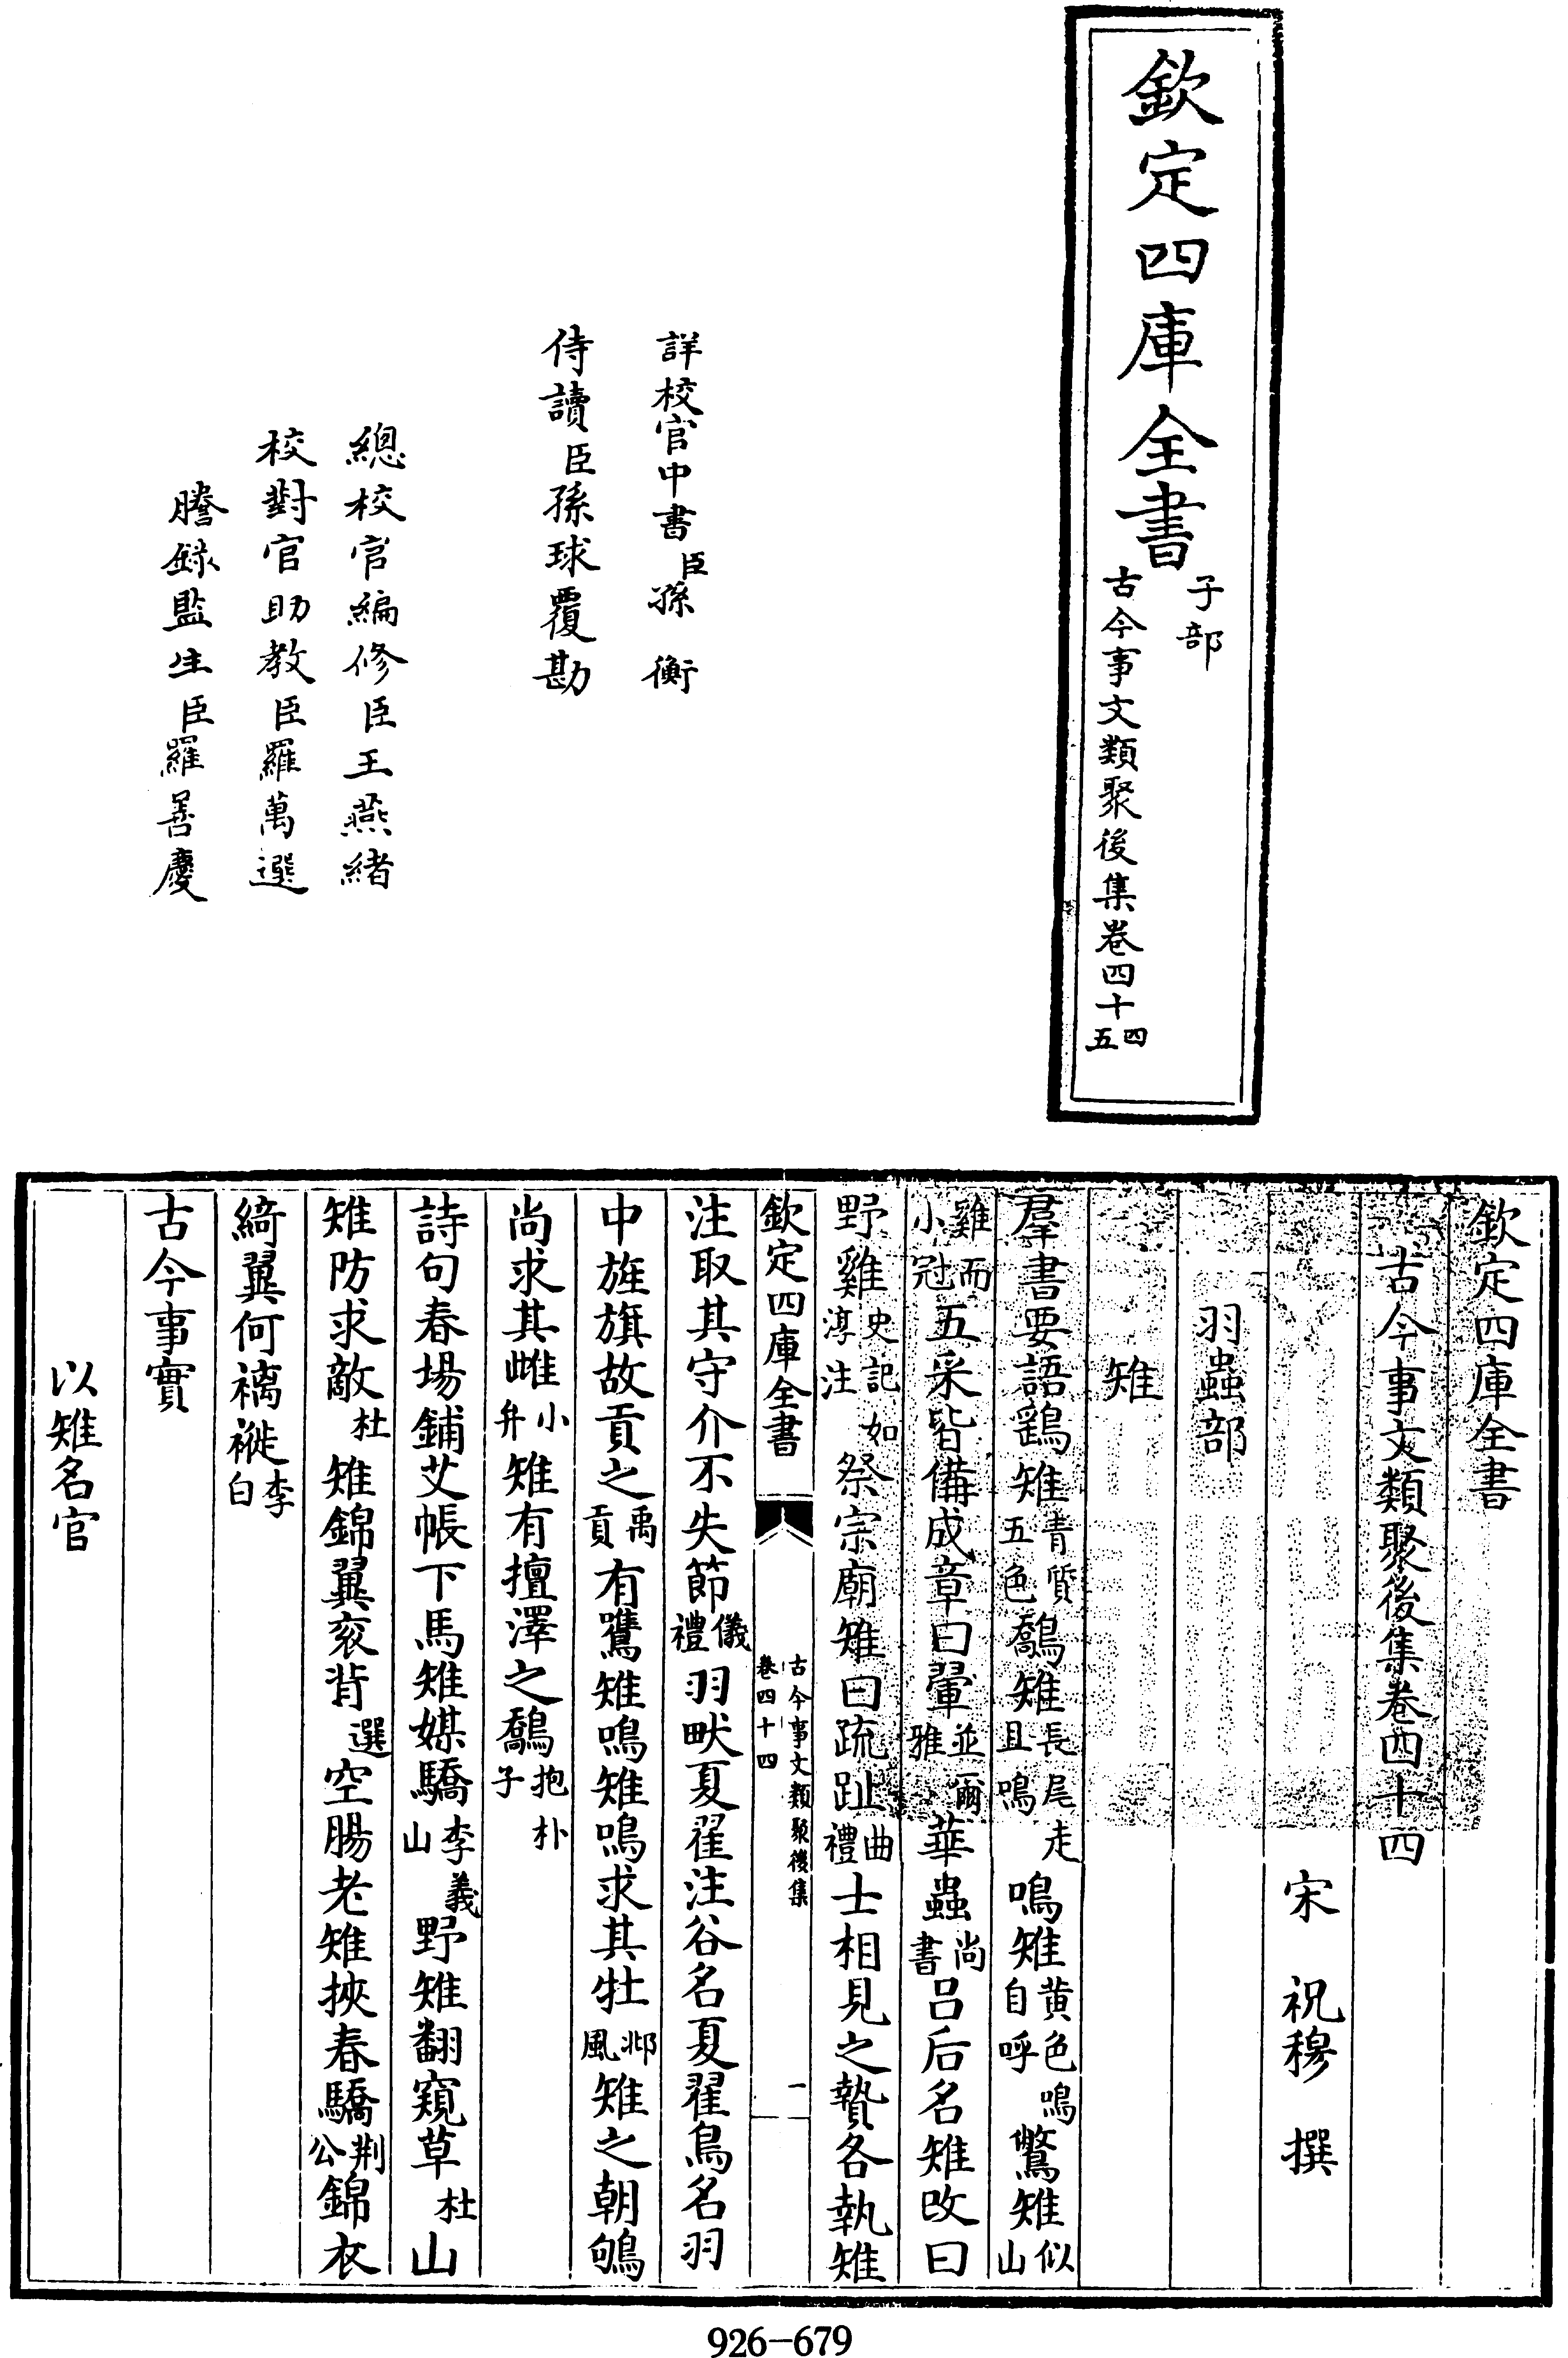 欽定四庫全書
子部
古今事文類聚後集卷四十四五
詳校官中書臣孫衡
侍讀臣孫球覆勘
總校官編修臣王燕緒
校對官助教臣羅萬選
謄錄監生臣羅善慶
欽定四庫全書
古今事文類聚後集卷四十四
宋 祝穆 撰
羽蟲部
雉
羣書要語鷂雉青質五色鷮雉長尾走且鳴鳴雉黄色鳴自呼鷩雉似山
雞而小冠五采皆備成章曰翬並爾雅華蟲尚書吕后名雉改曰
野雞史記如淳注祭宗廟雉曰疏趾曲禮士相見之贄各執雉
欽定四庫全書
古今事文類聚後集
卷四十四
一
注取其守介不失節儀禮羽畎夏翟注谷名夏翟鳥名羽
中旌旗故貢之禹貢有鷕雉鳴雉鳴求其牡邶風雉之朝雊
尚求其雌小弁雉有擅澤之鷮抱朴子
詩句春場鋪艾帳下馬雉媒驕李義山野雉翻窺草杜山
雉防求敵杜雉錦翼衮背選空腸老雉挾春驕荆公錦衣
綺翼何褵褷李白
古今事實
以雉名官
926-679